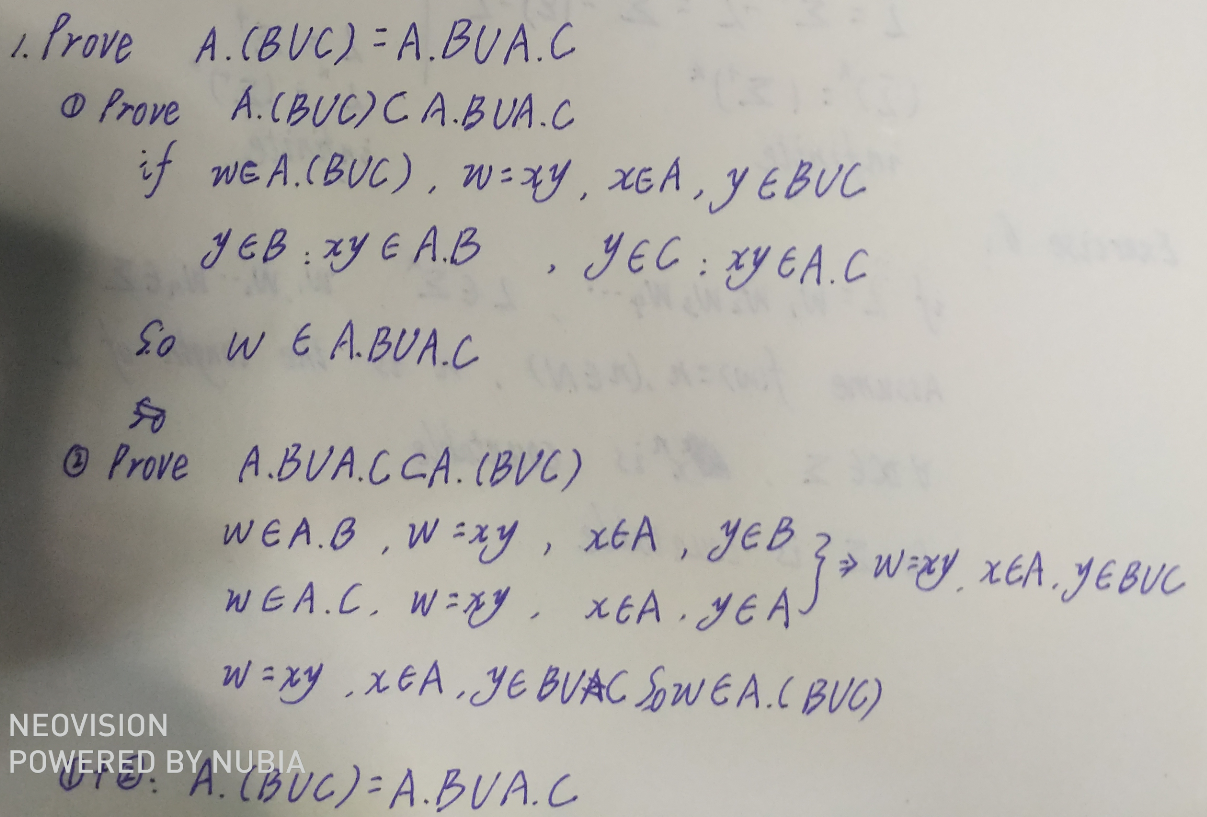 1. Prove A.(BUC) = A.BUA.C
① Prove A.(BUC) ⊂ A.BUA.C
if w∈A.(BUC), w=xy, x∈A, y∈BUC
y∈B : xy∈A.B , y∈C : xy∈A.C
So w ∈ A.BUA.C
② Prove A.BUA.C⊂A.(BUC)
w∈A.B, w=xy, x∈A, y∈B
w∈A.C, w=xy, x∈A, y∈A } ⇒ w=xy, x∈A, y∈BUC
w=xy, x∈A, y∈BUC So w∈A.(BUC)
NEOVISION
POWERED BY NUBIA
①+②: A.(BUC)=A.BUA.C